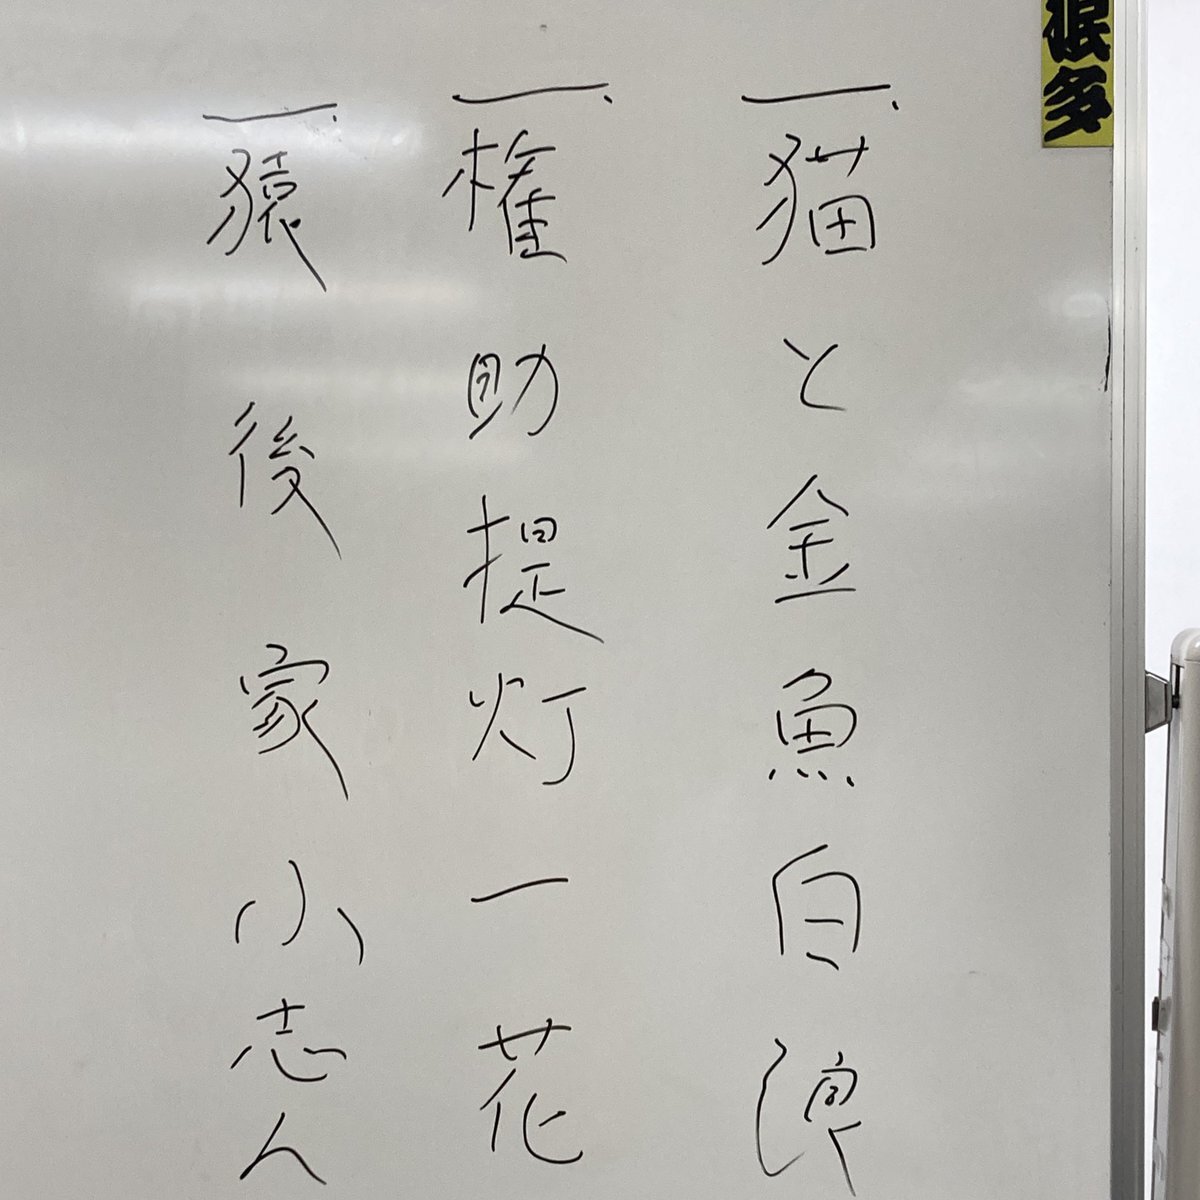 根多
一、猫と金魚 白浪
一、権助提灯 一花
一、猿後家 小志ん